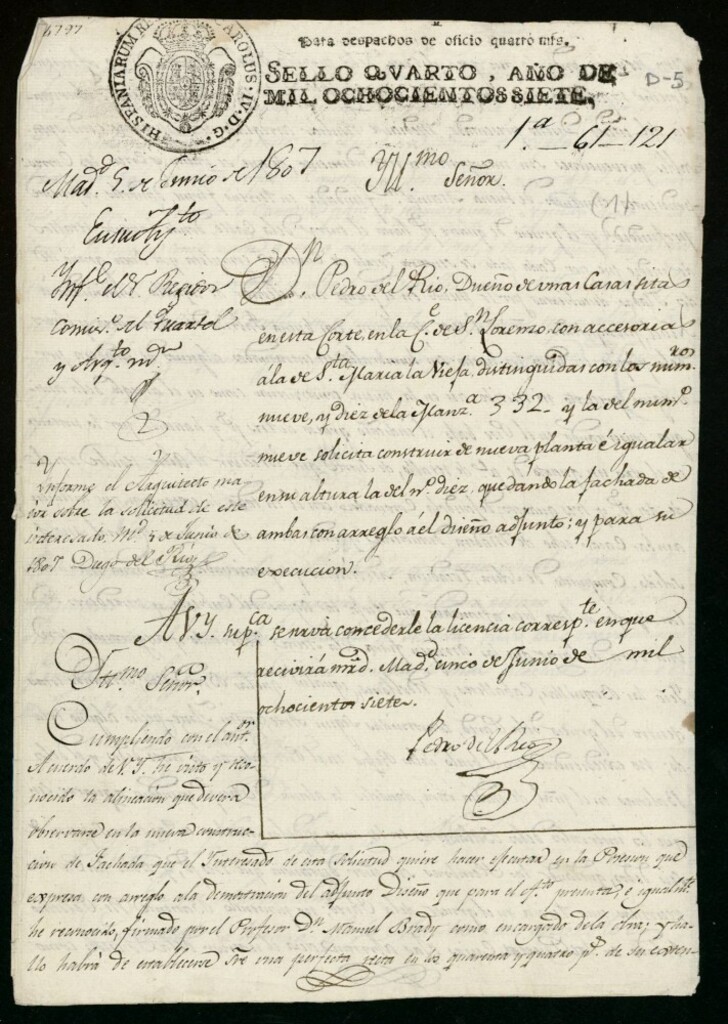 6797
HISPANIARUM REX CAROLUS·IV·D·G·
Para despachos de oficio quatro mrs.
SELLO QVARTO, AÑO DE
MIL OCHOCIENTOS SIETE.
D-5
1.ª—61—121
(1)
Mad.d 5 de Junio de 1807
Yll.mo Señor.
Ynf.e el Sr. Regidor
Comis.o del Quartel
y Arq.to m.or
D.n Pedro del Rio, Dueño de unas Casas sitas
en esta Corte, en la C.e de S.n Lorenzo, con accesorias
a la de S.ta Maria la Viefa, distinguidas con los num.ros
nueve, y diez de la Manz.a 332- y la del num.o
nueve solicita construir de nueva planta é igualar
en su altura la del n.o diez, quedando la fachada de
ambas con arreglo á el diseño adjunto; y para su
execucion.
A V.Y. sup.ca se sirva concederle la licencia corresp.te en que
recivirá mrd. Mad.d cinco de Junio de mil
ochocientos siete.
Pedro del Rio
Informe el Arquitecto ma
yor sobre la solicitud de este
interesado. M.d 5 de Junio de
1807 Diego del Rio
Yll.mo Señor.
Cumpliendo con el ant.or
Acuerdo de V.I. he visto y reco-
nocido la alineacion que devera
observarse en la nueva construc-
cion de Fachada que el Interesado de esta solicitud quiere hacer ejecutar en la Posesion que
expresa con arreglo a la demostracion del adjunto Diseño que para el ef.to presenta, é igualm.te
he reconocido, firmado por el Profesor D.n Manuel Brady como encargado de la obra; y ha-
llo habrá de establecerse sre una perfecta recta en los quarenta y quatro p.s de su exten-